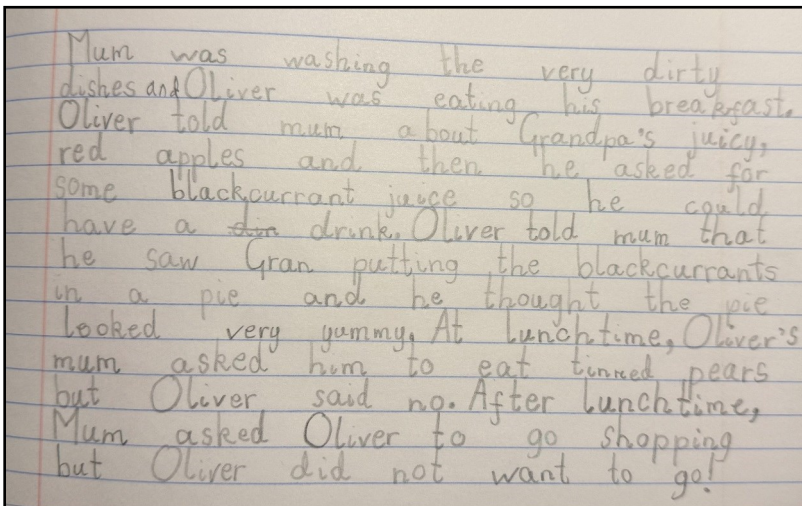 Mum was washing the very dirty
dishes and Oliver was eating his breakfast.
Oliver told mum about Grandpa's juicy,
red apples and then he asked for
some blackcurrant juice so he could
have a din drink. Oliver told mum that
he saw Gran putting the blackcurrants
in a pie and he thought the pie
looked very yummy. At lunchtime, Oliver's
mum asked him to eat tinned pears
but Oliver said no. After lunchtime,
Mum asked Oliver to go shopping
but Oliver did not want to go!